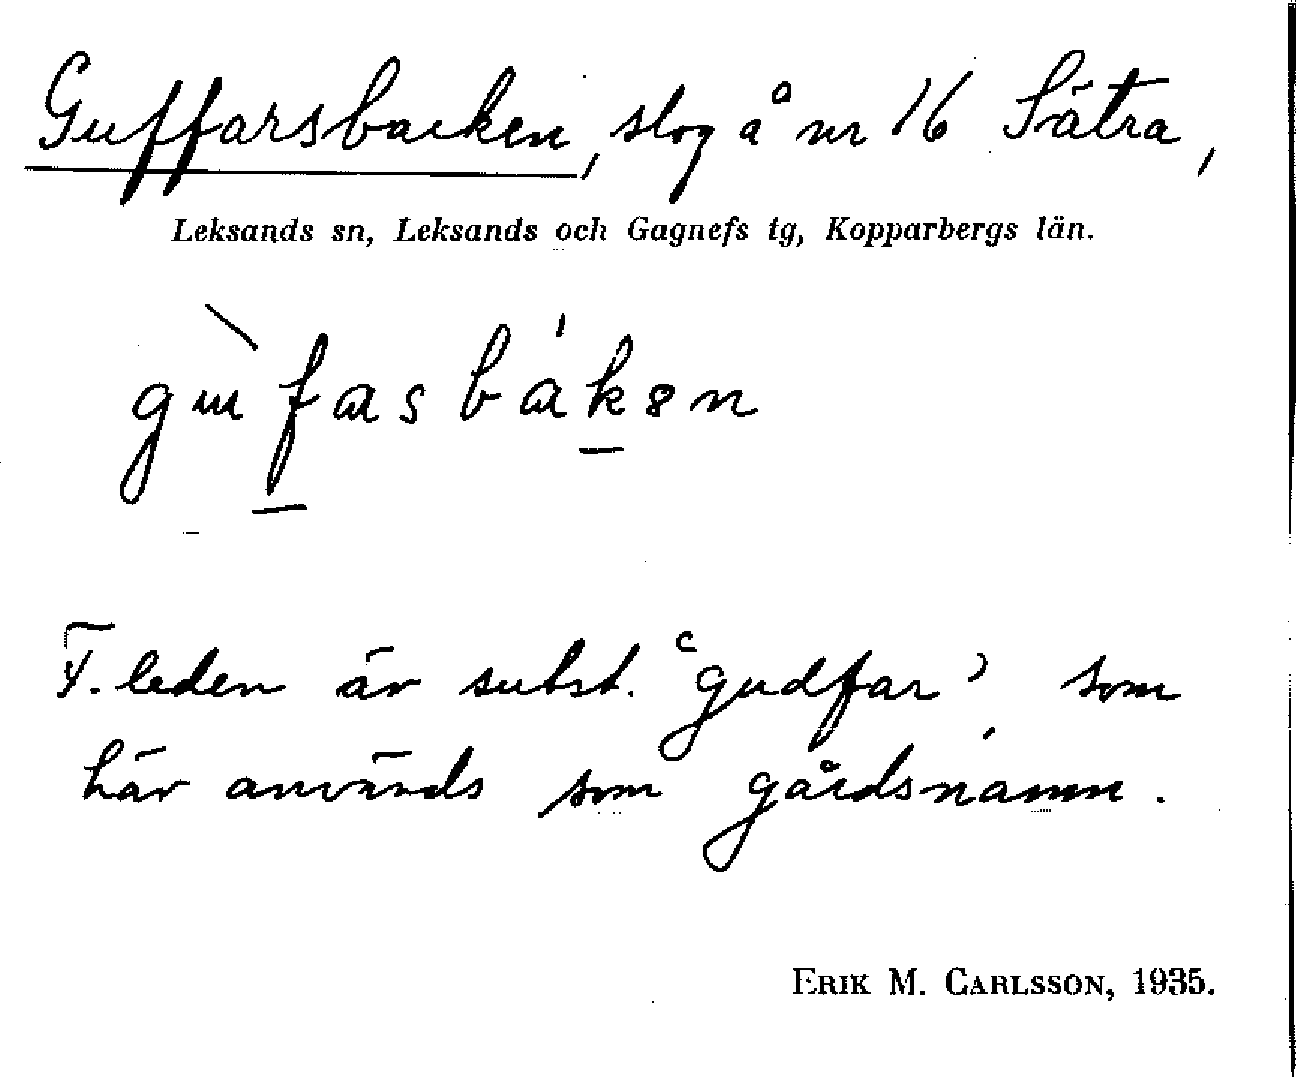 Guffarsbacken, slog å nr 16 Sätra,
Leksands sn, Leksands och Gagnefs tg, Kopparbergs län.
gɯ̀fasbákən
F. leden är subst. ‘gudfar’ som
här används som gårdsnamn.
ERIK M. CARLSSON, 1935.